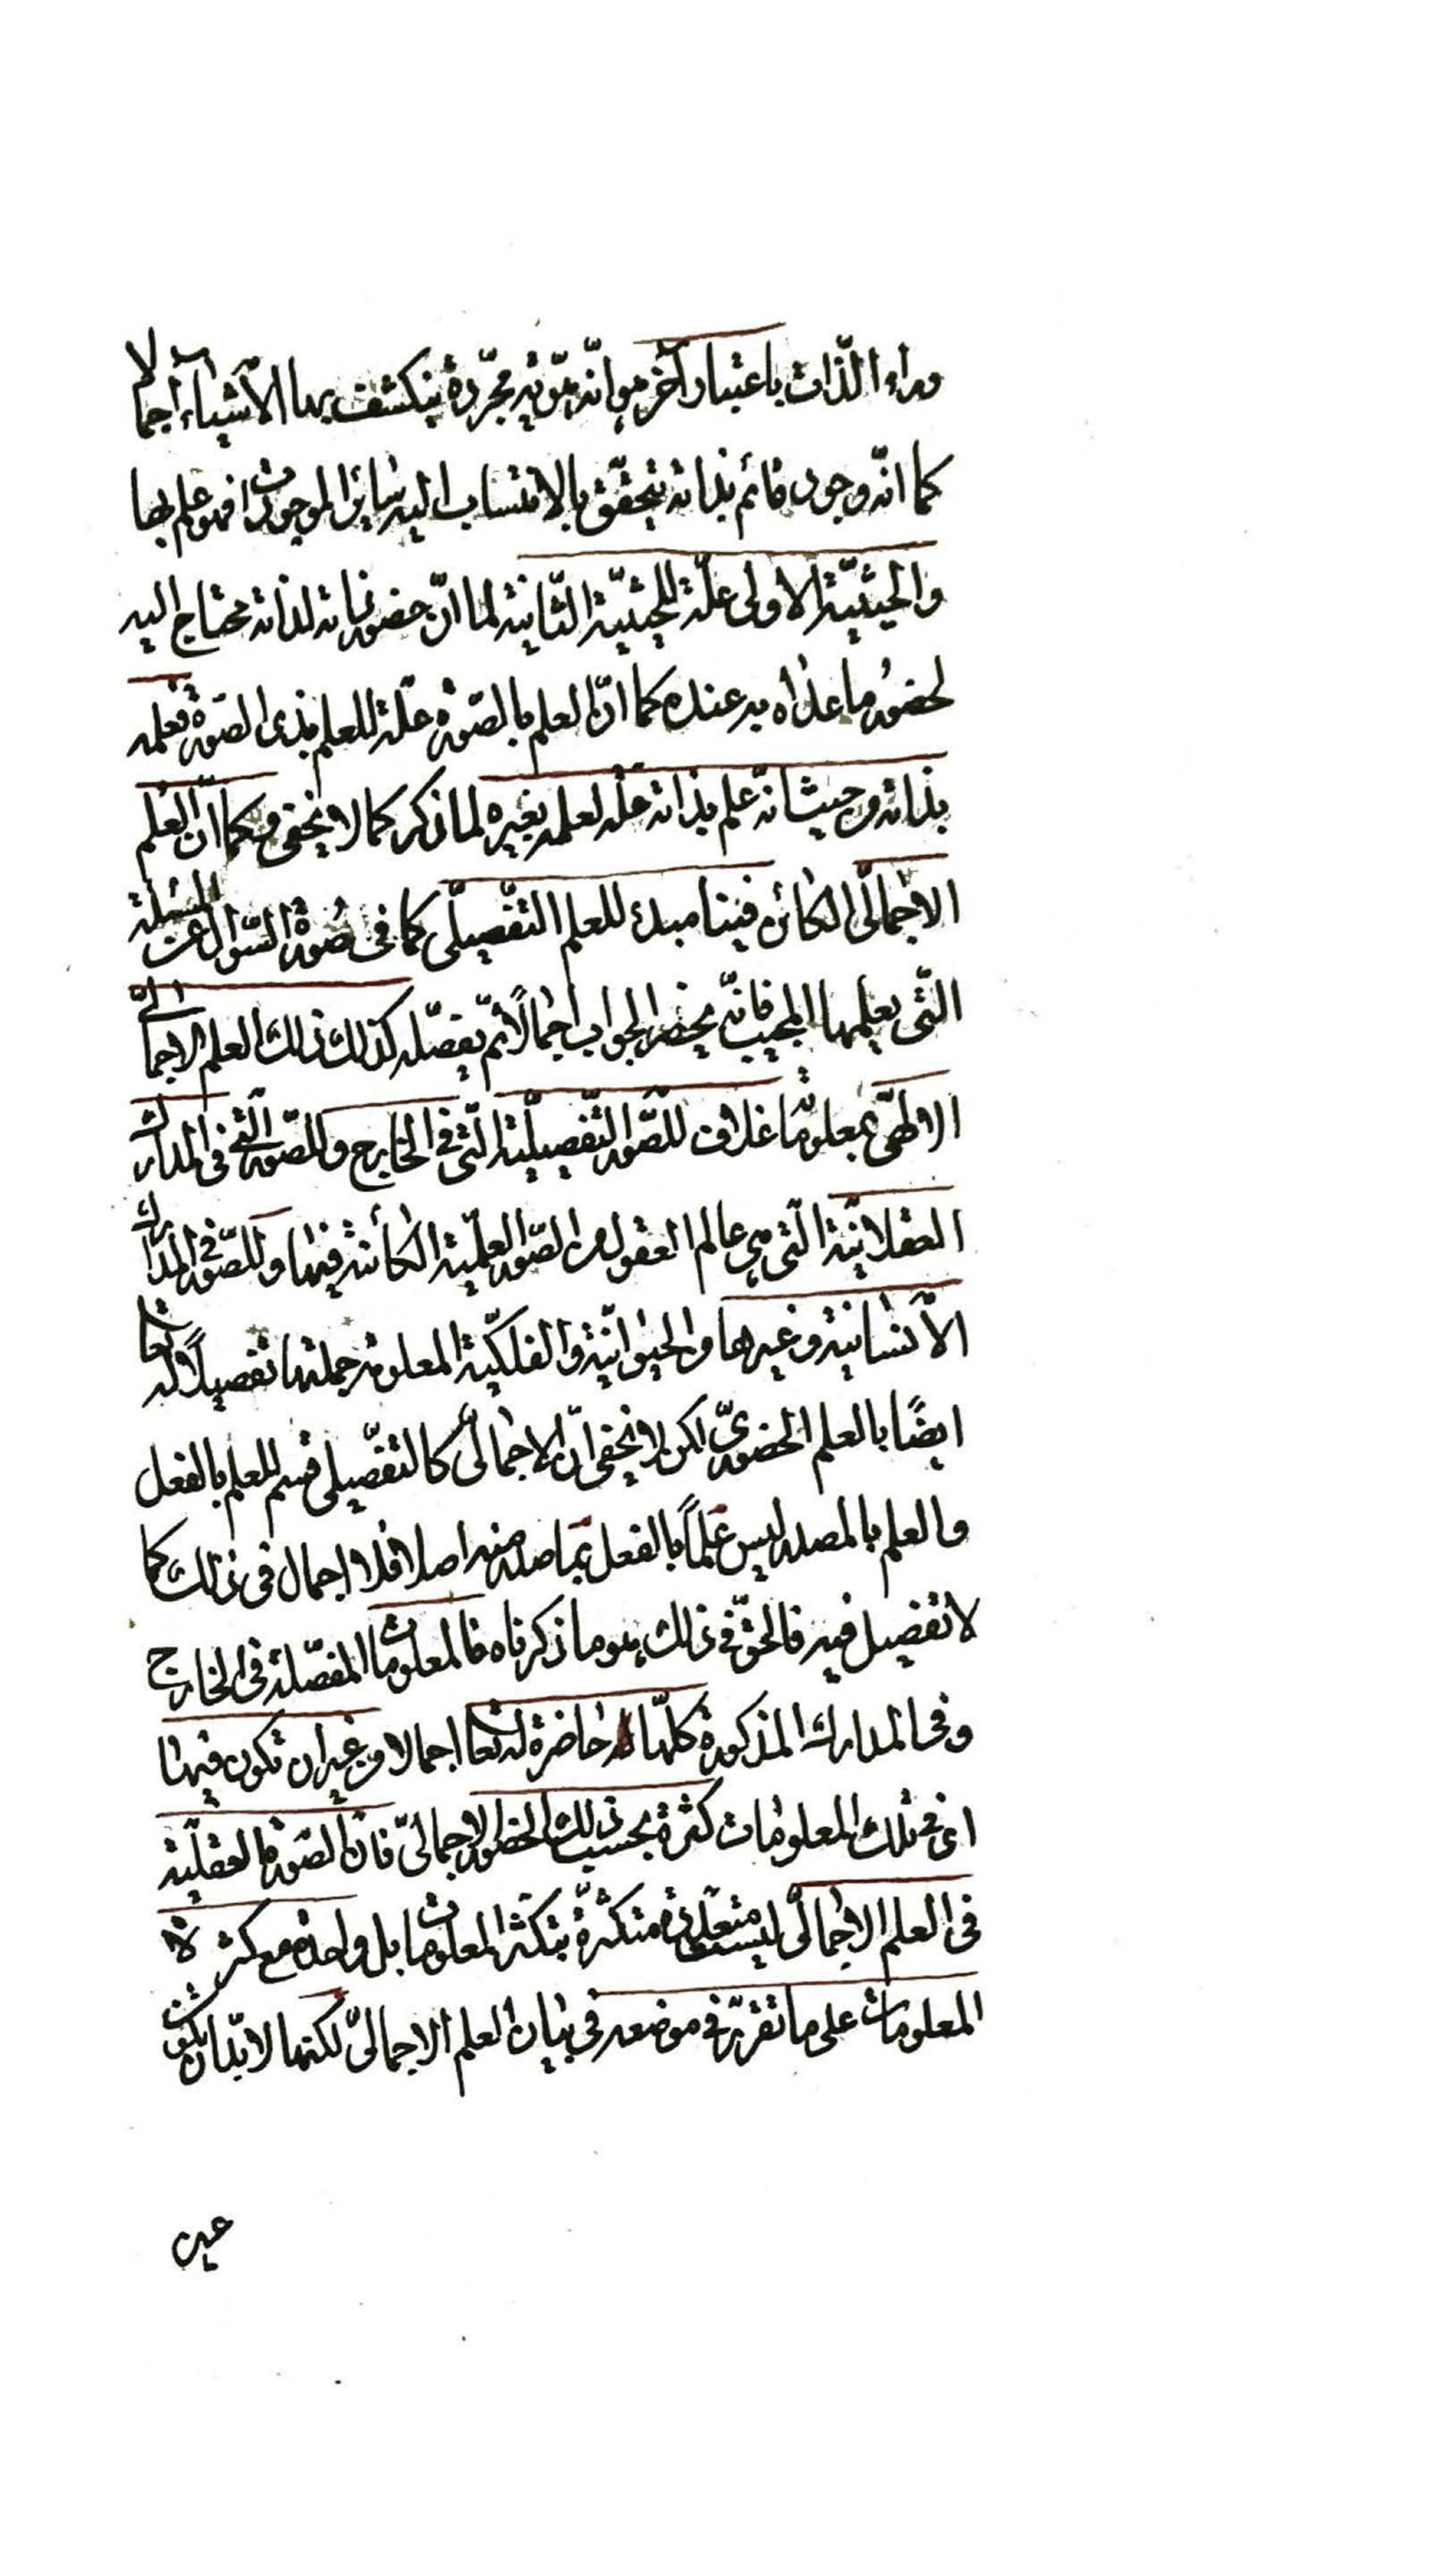 وراء الذات باعتبار آخر هو انّه هويّة مجرّدة ينكشف بها الأشياء اجمالا
كما انّه وجود قائم بذاته يتحقّق بالانتساب اليه سائر الموجودات فهو علم بها
والحيثيّة الاولى علّة للحيثيّة الثّانية لما انّ حضور ذاته لذاته محتاج اليه
لحضور ما عداه عنده كما انّ العلم بالصّورة علّة للعلم بذى الصّورة فعلمه
بذاته من حيث انه علم بذاته علّة لعلمه بغيره لما ذكر كما لا يخفى وكما انّ العلم
الاجمالىّ الكائن فينا مبدء للعلم التّفصيلى كما فى صورة السّوال عن المسئلة
التّى يعلمها المجيب فانّه يحضر الجواب اجمالاً ثمّ يفصّله كذلك ذلك العلم الاجمالىّ
الالهىّ بمعلوماته خلاق للصّور التّفصيليّة الّتى فى الخارج وللصّور الّتى فى المدارك
العقلانيّة الّتى هى عالم العقول من الصّور العلميّة الكائنة فيها وللصّور فى المدارك
الانسانية وغيرها والحيوانيّة والفلكيّة المعلومة جملتها تفصيلاً له تعالى
ايضًا بالعلم الحضورىّ لكن لا يخفى انّ الاجمالىّ كالتفصيلى قسم للعلم بالفعل
والعلم بالمصدر ليس علماً بالفعل بما صدر منه اصلا فلا اجمال فى ذلك كما
لا تفصيل فيه فالحقّ فى ذلك هو ما ذكرناه فالمعلومات المفصّلة فى الخارج
وفى المدارك المذكورة كلّها حاضرة له تعالى اجمالا من غير ان تكون فيها
اى فى تلك المعلومات كثرة بحسب ذلك الحضور الاجمالىّ فانّ الصّورة العقليّة
فى العلم الاجمالىّ ليست متعدّدة متكثّرة بتكثّر المعلومات بل واحدة مع كثرة
المعلومات على ما تقرّر فى موضعه فى بيان العلم الاجمالىّ لكنها لا بدّ ان يكون
عين